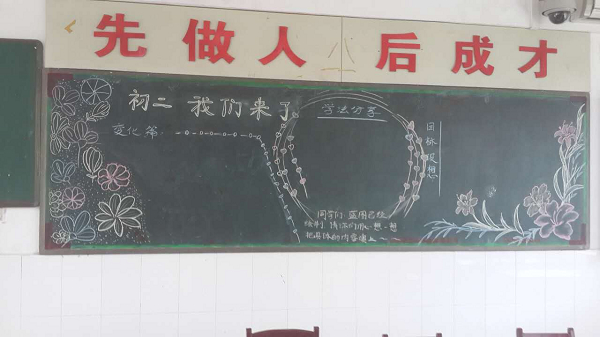 先做人 后成才
初二 我们来了
学法分享
变化篇
目标理想
同学们, 蓝图已经
绘制, 请你们想一想
把具体的内容填上~